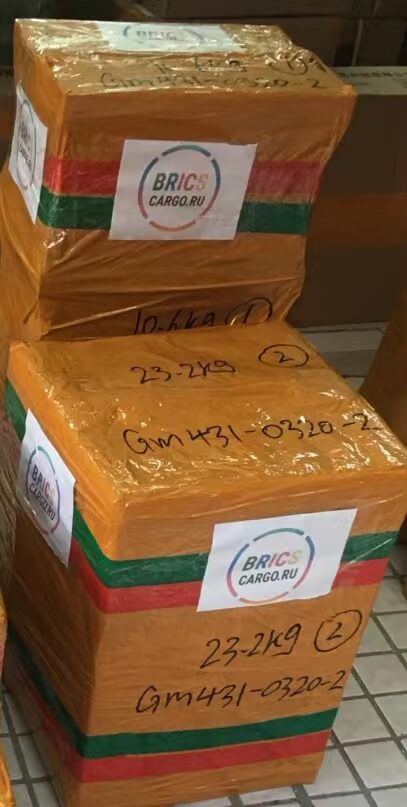 BRICS
Gm431-0320-2
BRICS
CARGO.RU
10.6kg 1
23.2kg 2
Gm431-0320-2
BRICS
CARGO.RU
BRICS
CARGO.RU
23.2kg 2
Gm431-0320-2